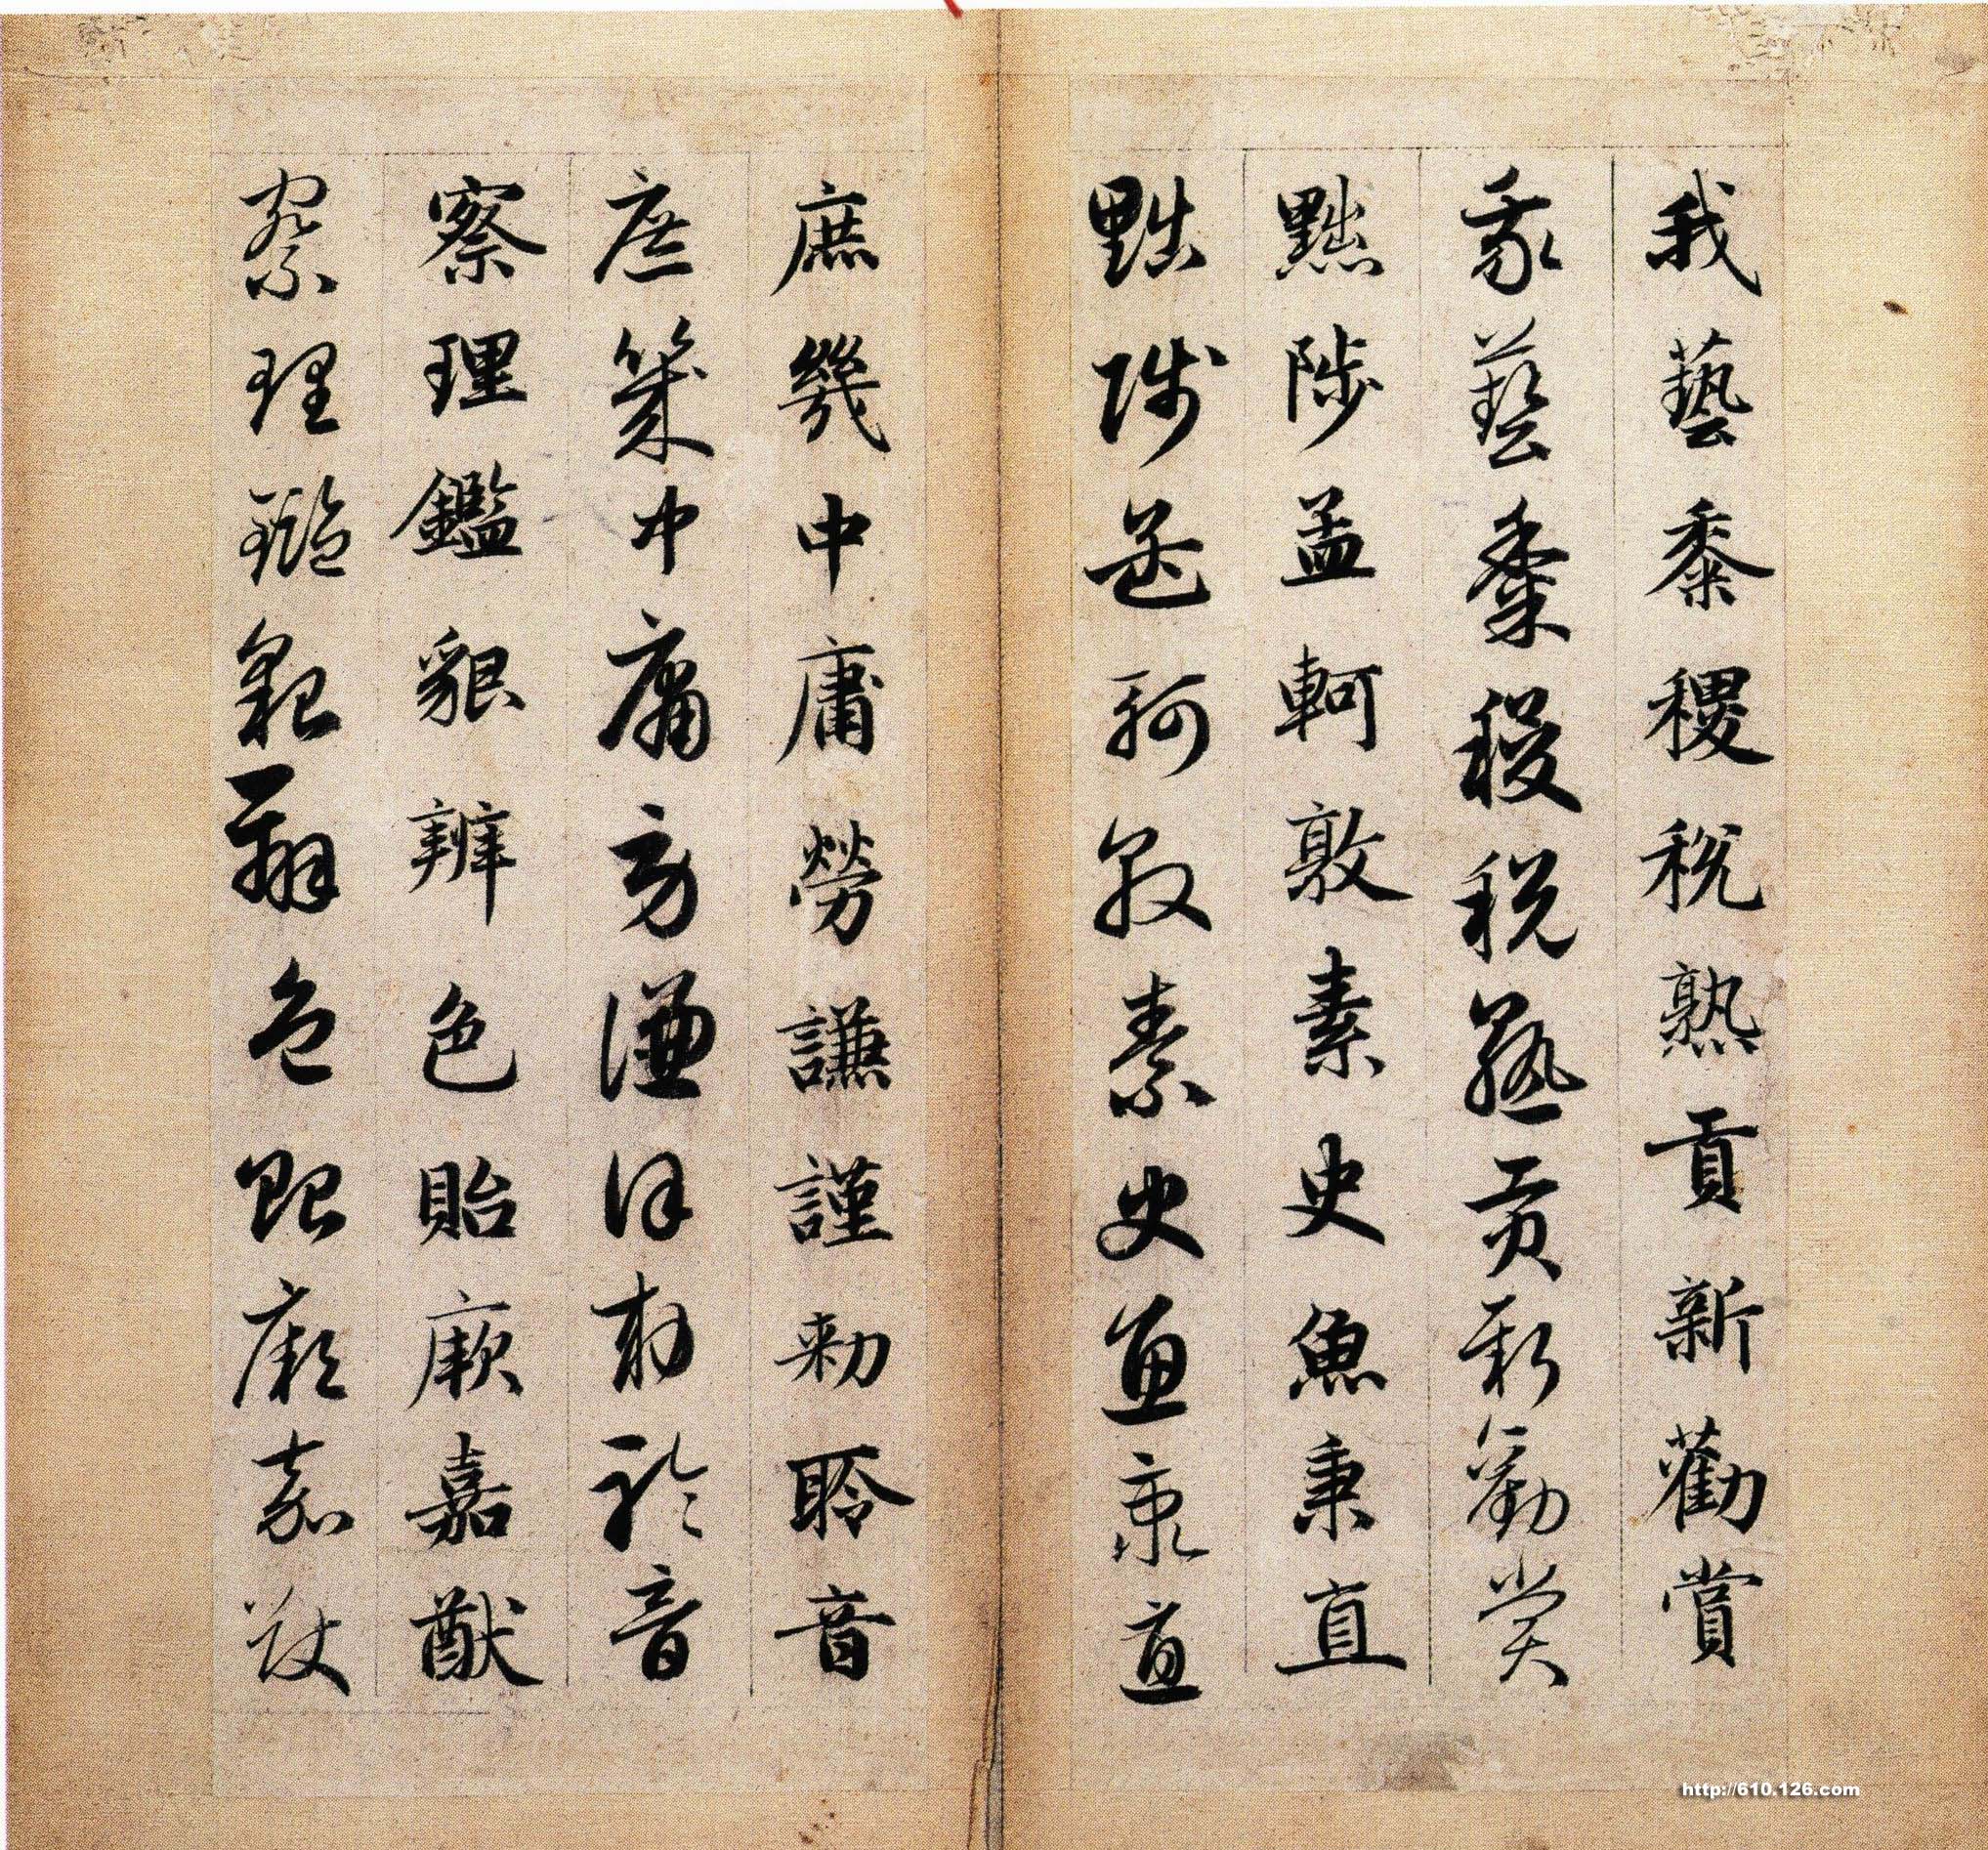 我藝黍稷稅熟貢新勸賞
我藝黍稷稅熟貢新勸賞
黜陟孟軻敦素史魚秉直
黜陟孟軻敦素史魚秉直
庶幾中庸勞謙謹勅聆音
庶幾中庸勞謙謹勅聆音
察理鑑貌辨色貽厥嘉猷
察理鑑貌辨色貽厥嘉猷
http://610.126.com